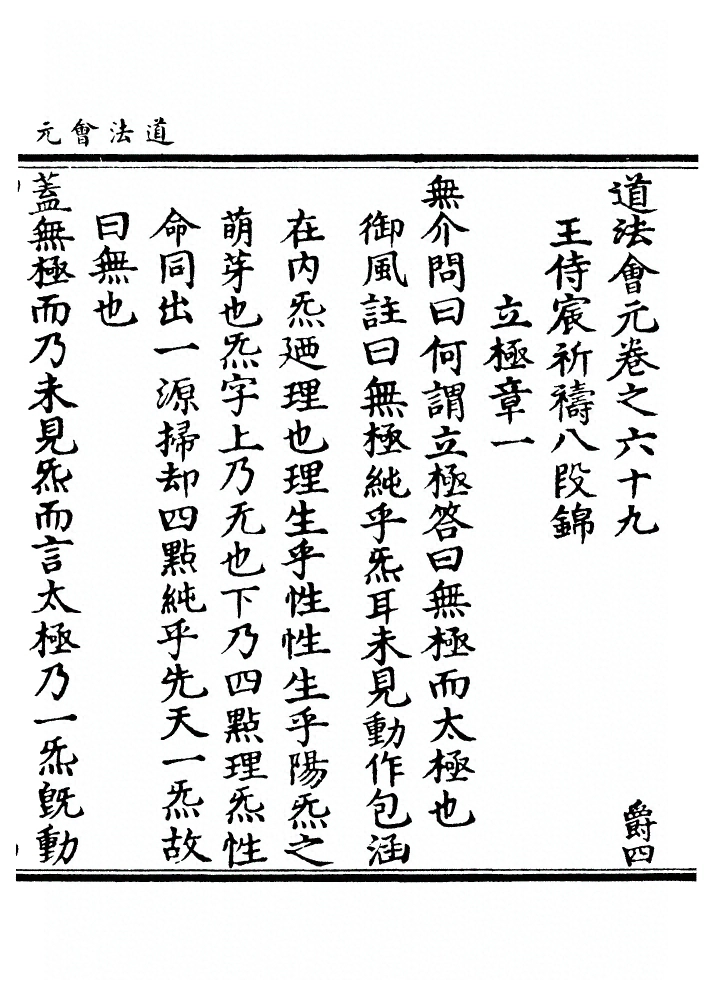 道法會元
道法會元卷之六十九　爵四
王侍宸祈禱八段錦
立極章一
無介問曰何謂立極答曰無極而太極也
御風註曰無極純乎炁耳未見動作包涵
在內炁廼理也理生乎性性生乎陽炁之
萌芽也炁字上乃无也下乃四點理炁性
命同出一源掃却四點純乎先天一炁故
曰無也
蓋無極而乃未見炁而言太極乃一炁旣動